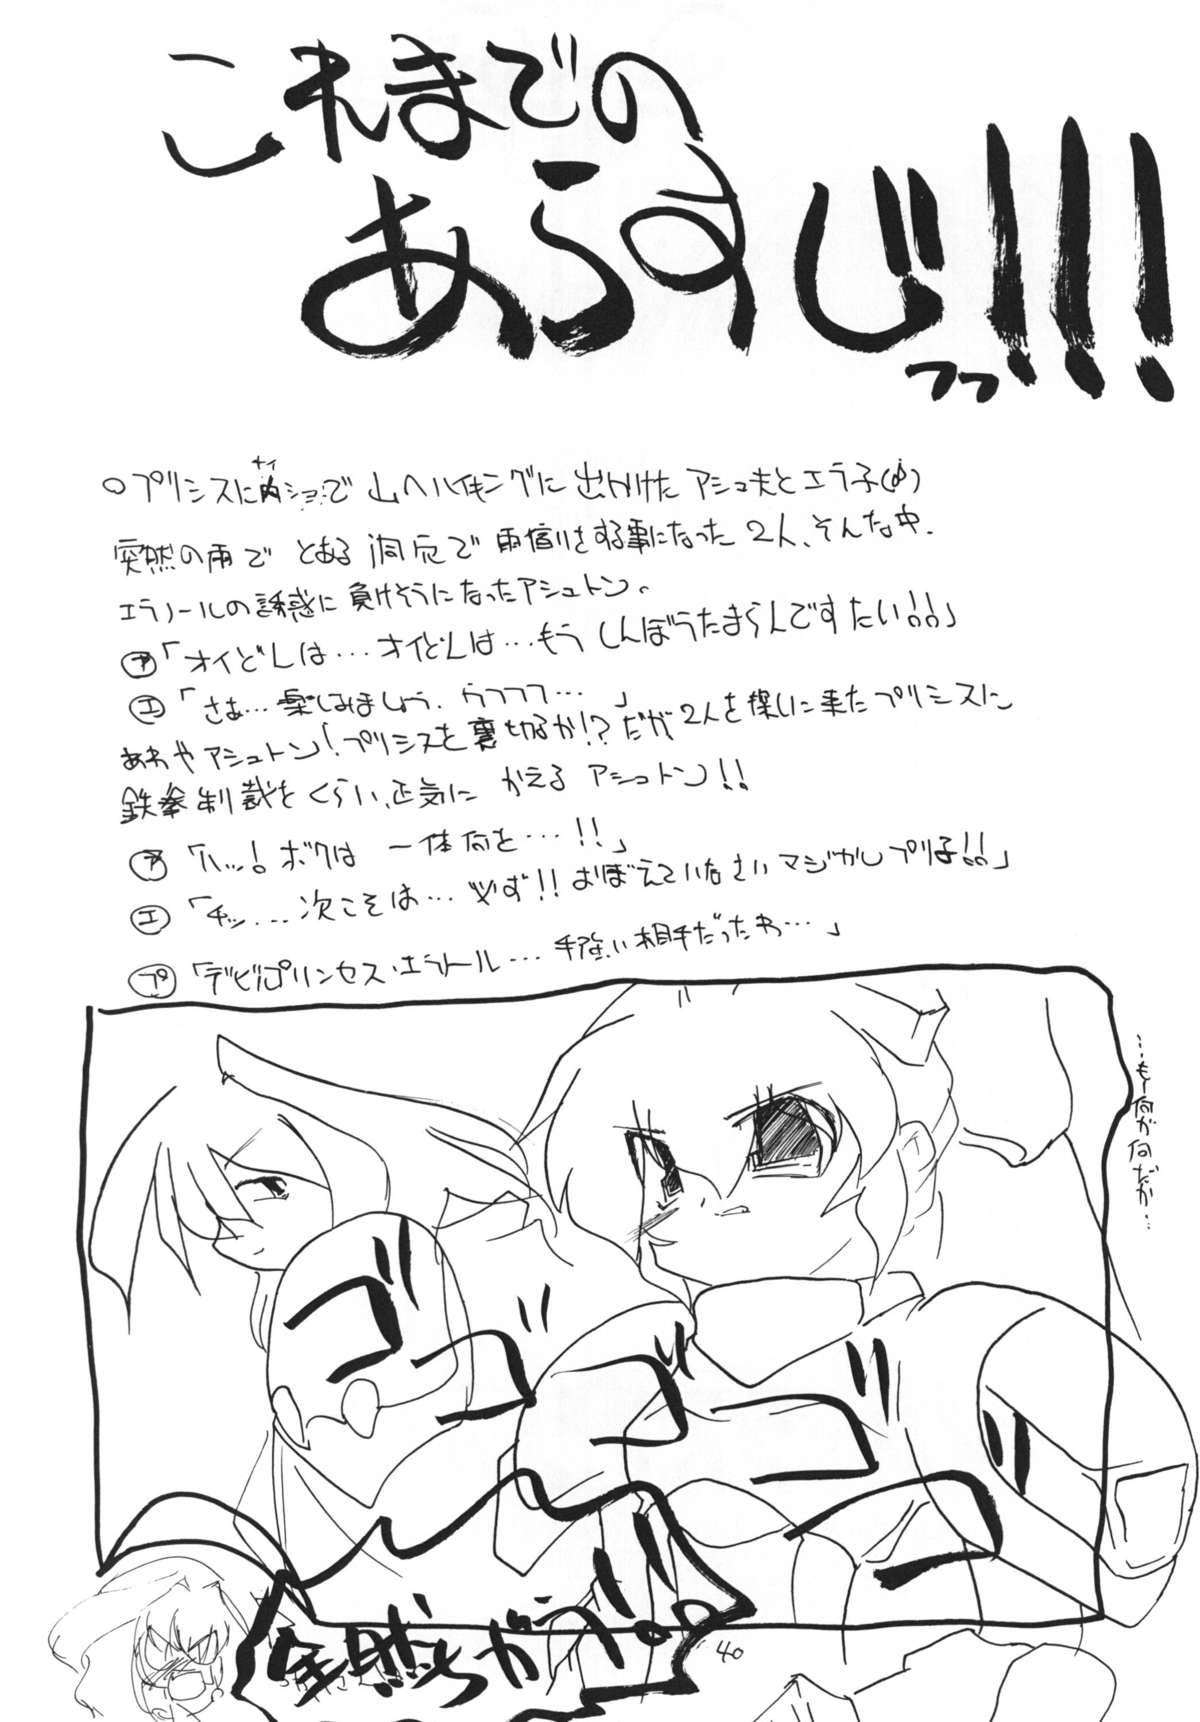 これまでの
あらすじっっ!!!
○プリシスに内ショで山へハイキングに出かけたアシュ夫とエラ子(♂)
ナイ
突然の雨でとある洞穴で雨宿りをする事になった2人、そんな中、
エラノールの誘惑に負けそうになったアシュトン。
ア「オイどんは…オイどんは…もうしんぼうたまらんですたい!!」
エ「さぁ…楽しみましょう。ウフフフ…」
あわやアシュトン!プリシスを裏切るか!?だが2人を探しに来たプリシスに
鉄拳制裁をくらい、正気にかえるアシュトン!!
ア「ハッ!ボクは一体何を…!!」
エ「チッ...次こそは…必ず!!おぼえていなさいマジカルプリ子!!」
プ「デビルプリンセス・エラノール…手強い相手だったわ…」
…もー何が何だか…
ゴゴゴゴゴ
全然ちがう!。
40